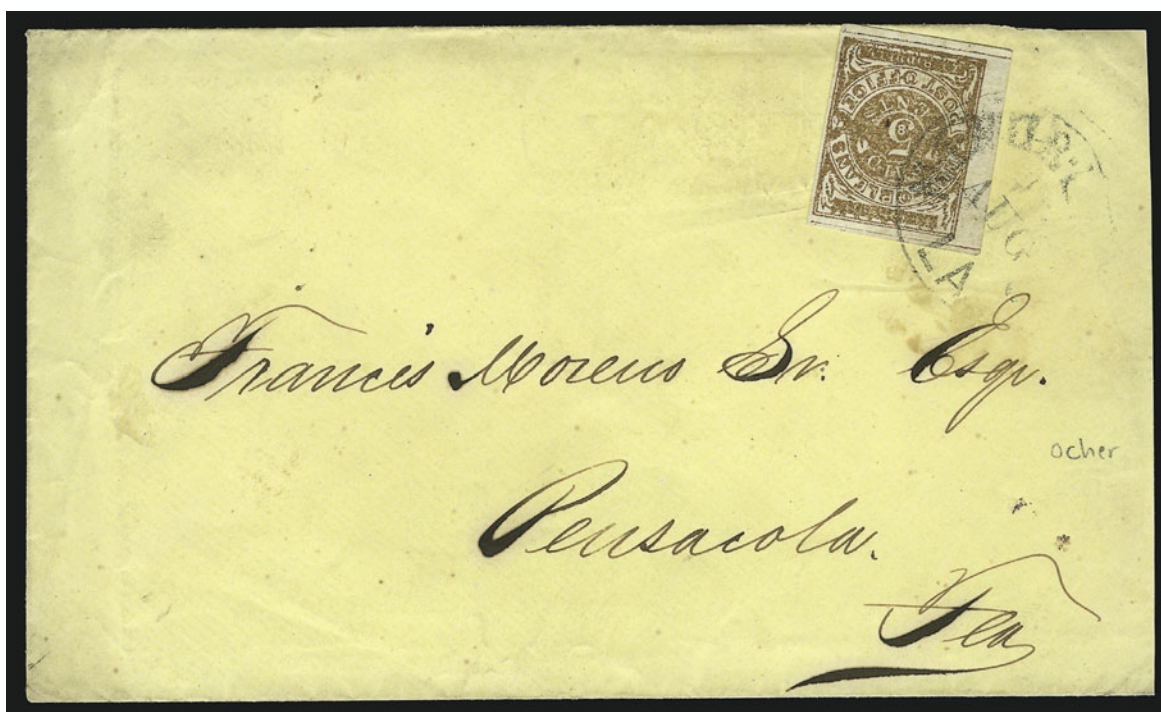 POST OFFICE
5 CENTS
AUG
LA
Francis Moreno Sr. Esqr.
ocher
Pensacola.
Fla